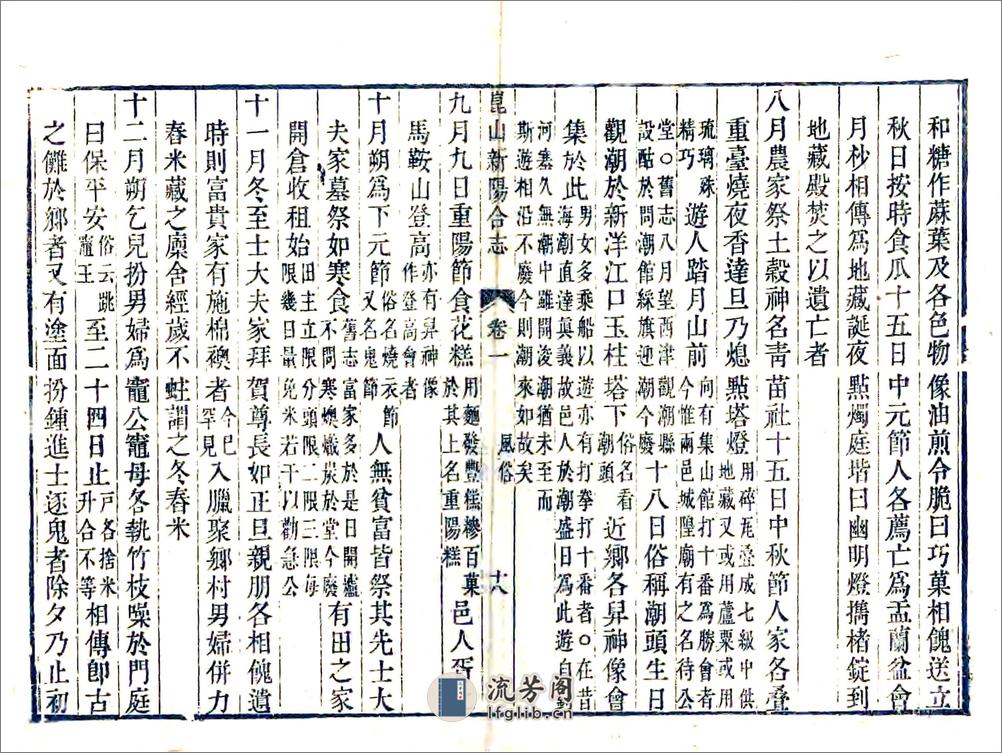 和糖作蔴葉及各色物像油煎令脆曰巧菓相餽送立
秋日按時食瓜十五日中元節人各薦亡爲盂蘭盆會
月杪相傳爲地藏誕夜點燭庭堦曰幽明燈擕楮錠到
地藏殿焚之以遺亡者
八月農家祭土穀神名青苗社十五日中秋節人家各疊
重臺燒夜香達旦乃熄點塔燈用碎瓦疊成七級中供地藏又或用蘆粟或用
琉璃珠精巧遊人踏月山前向有集山館打十番爲勝會者今惟兩邑城隍廟有之名待公
堂○舊志八月望西津觀潮縣設酤於問潮館綵旗迎潮今廢十八日俗稱潮頭生日
觀潮於新洋江口玉柱塔下俗名看潮頭近鄉各舁神像會
集於此男女多乘船以遊亦有打拳打十番者○在昔海潮直達眞義故邑人於潮盛日爲此遊自劉
河塞久無潮中雖開浚潮猶未至而斯遊相沿不廢今則潮來如故矣
崑山新陽合志 卷一 風俗 十八
九月九日重陽節食花糕用麵發豐糕糝百菓於其上名重陽糕邑人胥
馬鞍山登高亦有舁神像作登高會者
十月朔爲下元節俗名燒衣節又名鬼節人無貧富皆祭其先士大
夫家墓祭如寒食舊志富家多於是日開爐不問寒燠熾炭於堂今廢有田之家
開倉收租始田主立限分頭限二限三限每限幾日量免米若干以勸急公
十一月冬至士大夫家拜賀尊長如正旦親朋各相餽遺
時則富貴家有施棉襖者今已罕見入臘聚鄉村男婦併力
舂米藏之廩舍經歲不蛀謂之冬舂米
十二月朔乞兒扮男婦爲竈公竈母各執竹枝噪於門庭
曰保平安俗云跳竈王至二十四日止戶各捨米升合不等相傳卽古
之儺於鄉者又有塗面扮鍾進士逐鬼者除夕乃止初
流芳阁
lfglib.cn